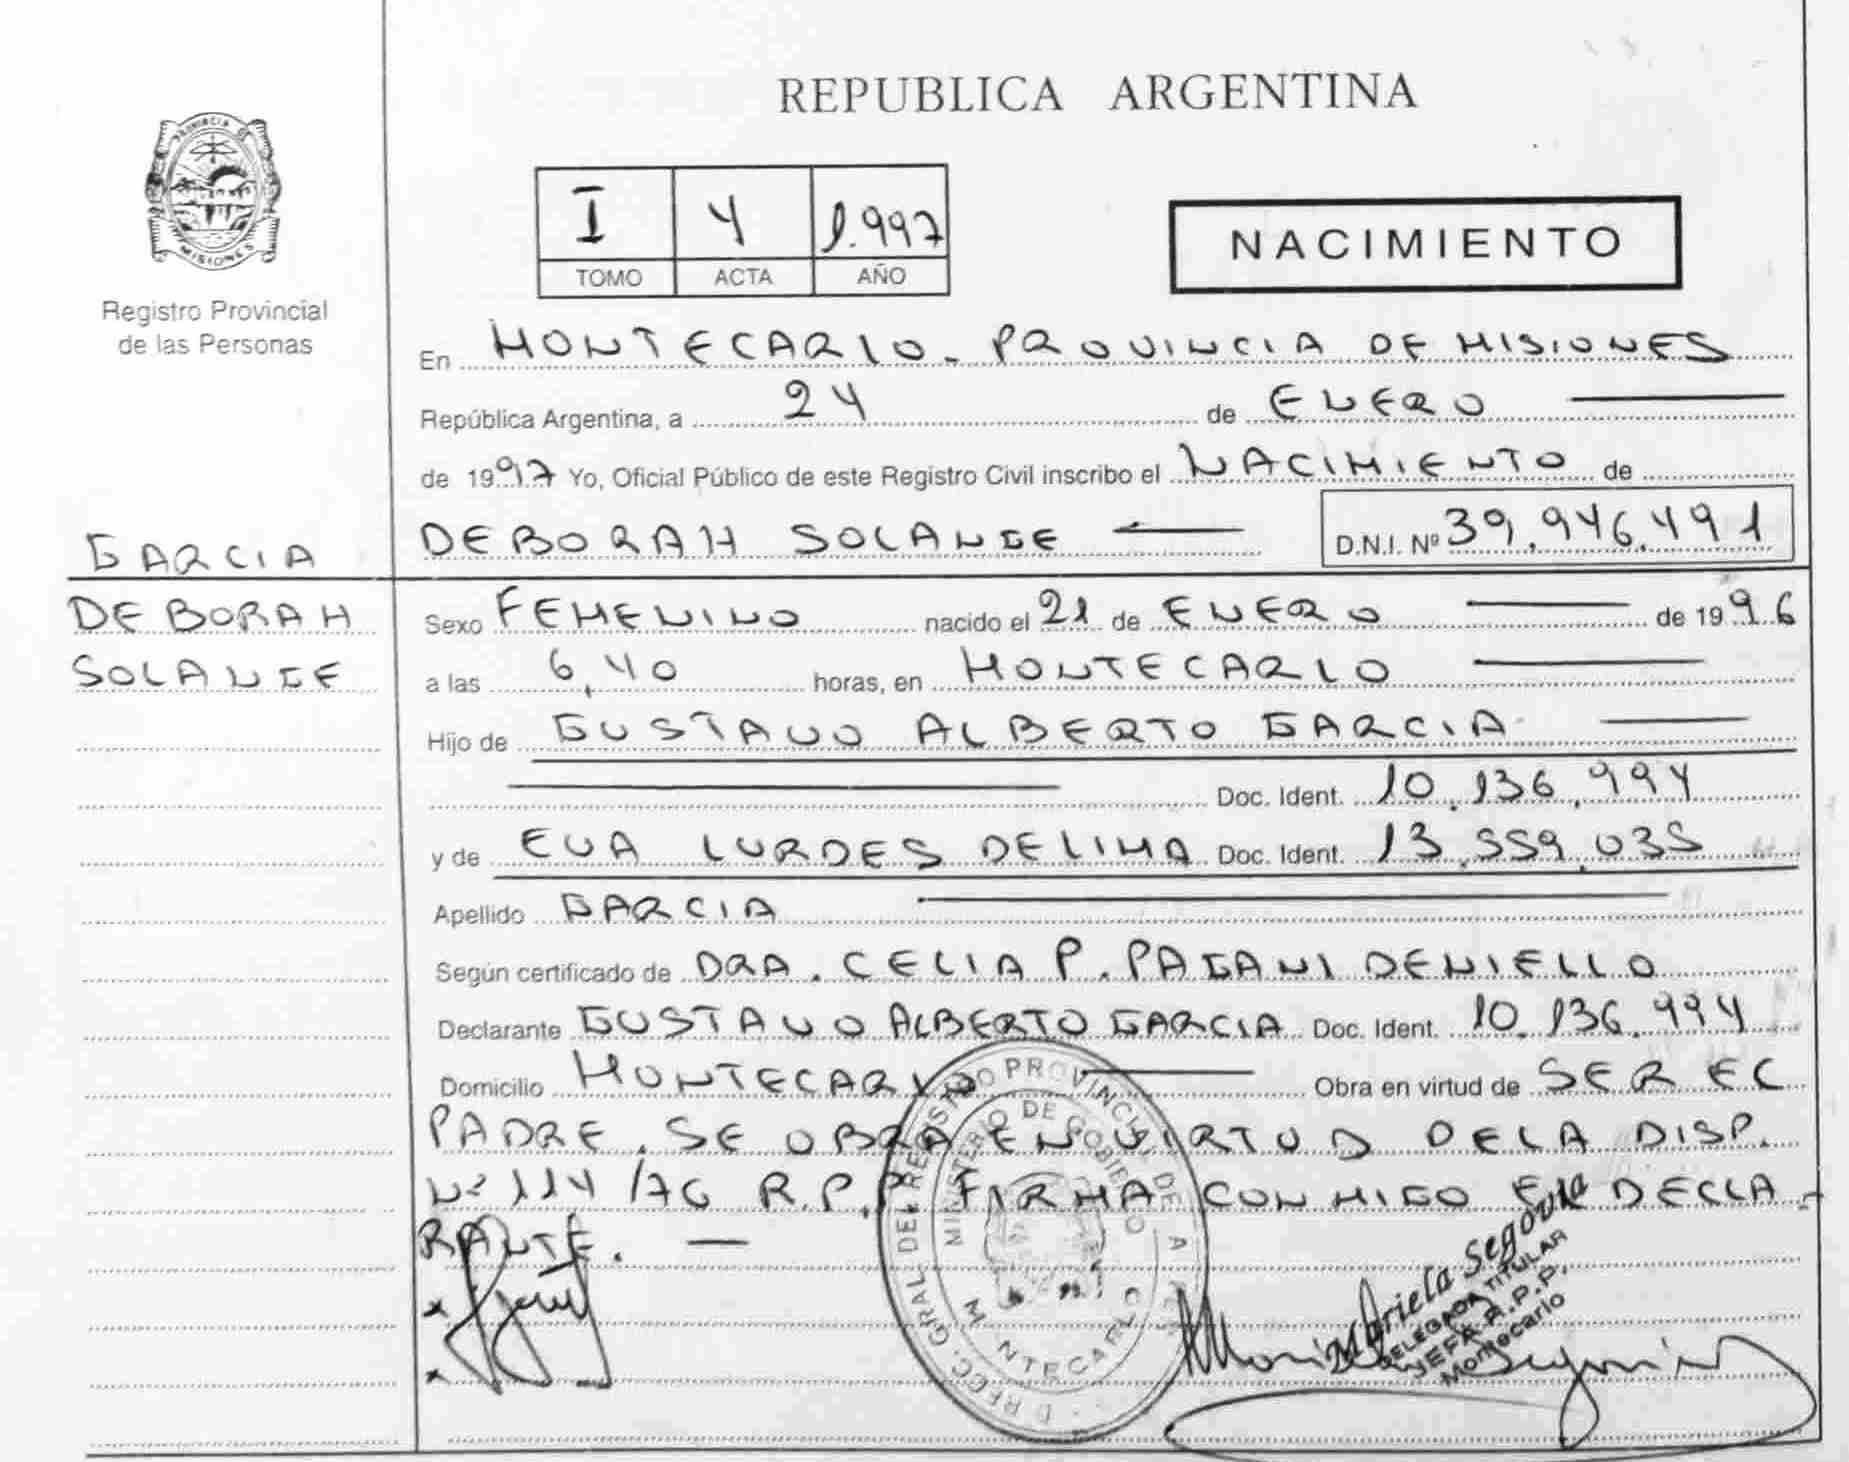 REPUBLICA ARGENTINA
PROVINCIA DE
MISIONES
Registro Provincial
de las Personas
I 4 1.997
TOMO ACTA AÑO
NACIMIENTO
En MONTECARLO - PROVINCIA DE MISIONES
República Argentina, a 24 de ENERO
de 1997 Yo, Oficial Público de este Registro Civil inscribo el NACIMIENTO de
GARCIA
DEBORAH
SOLANGE
DEBORAH SOLANGE D.N.I. Nº 39.946.491
Sexo FEMENINO nacido el 21 de ENERO de 1996
a las 6,40 horas, en MONTECARLO
Hijo de GUSTAVO ALBERTO GARCIA
Doc. Ident. 10.136.994
y de EVA LURDES DELIMA Doc. Ident. 13.559.035
Apellido GARCIA
Según certificado de DRA. CELIA P. PAGANI DENIELLO
Declarante GUSTAVO ALBERTO GARCIA Doc. Ident. 10.136.994
Domicilio MONTECARLO Obra en virtud de SER EL
PADRE. SE OBRA EN VIRTUD DE LA DISP.
Nº 114/76 R.P.P. FIRMA CONMIGO EL DECLA-
RANTE.
DIRECC. GRAL DEL REGISTRO PROVINCIAL DE LA
MINISTERIO DE GOBIERNO
MONTECARLO
Mariela Segovia
DELEGADA TITULAR
JEFA R.P.P.
Montecarlo